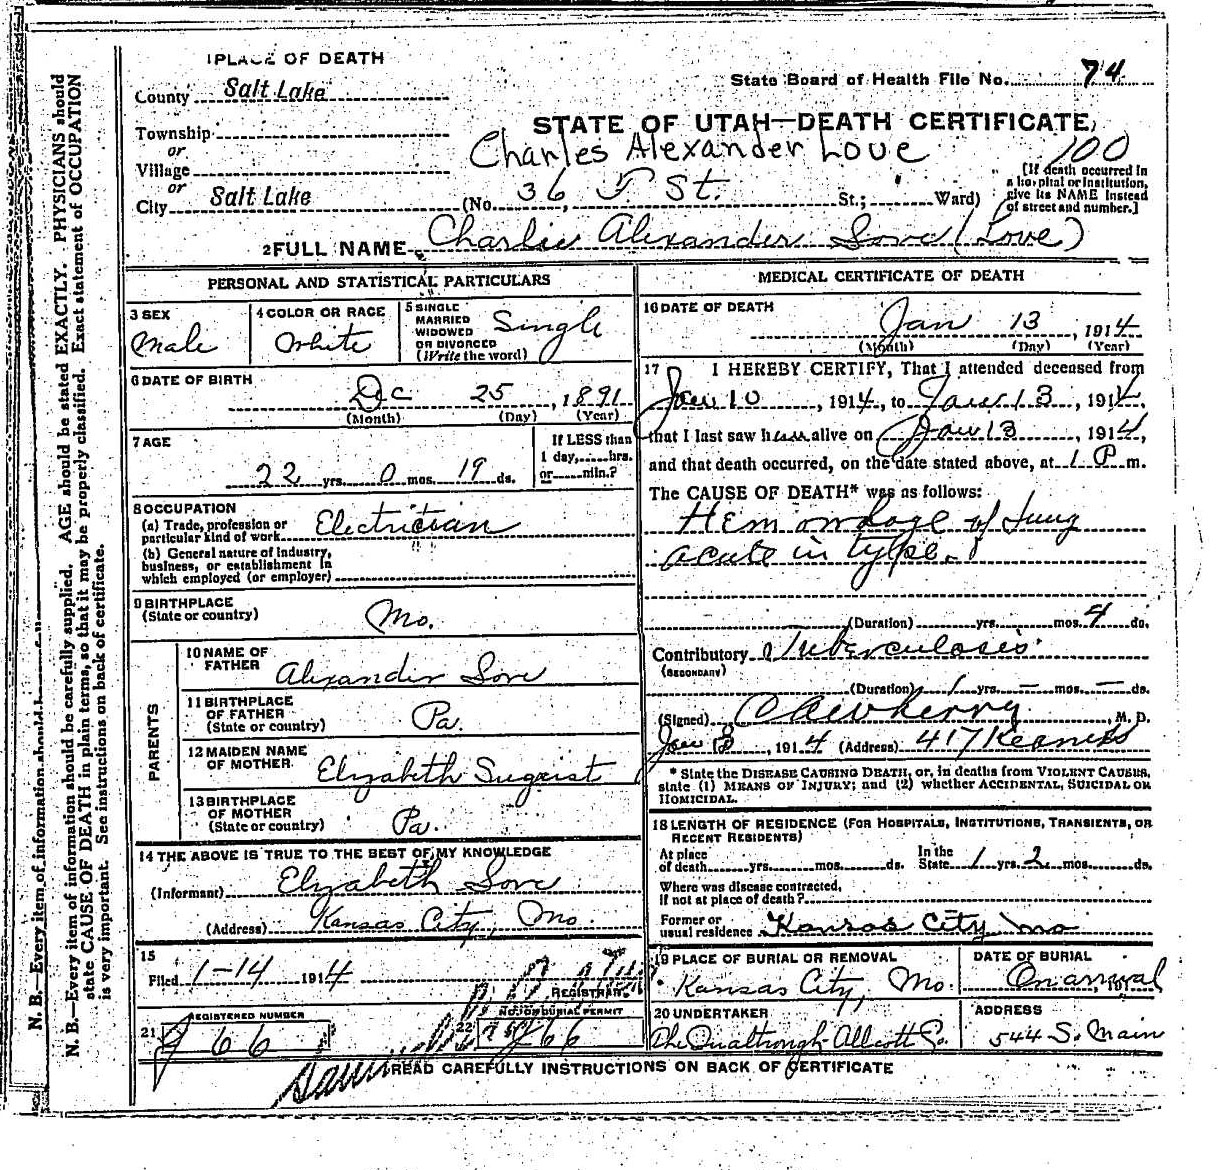 1 PLACE OF DEATH
State Board of Health File No. 74
County Salt Lake
STATE OF UTAH—DEATH CERTIFICATE
Township
or
Charles Alexander Love
100
Village
or
City Salt Lake (No. 36 J St. St.; Ward)
[If death occurred in a hospital or institution, give its NAME instead of street and number.]
2 FULL NAME Charlie Alexander Love (Love)
PERSONAL AND STATISTICAL PARTICULARS
3 SEX
Male
4 COLOR OR RACE
White
5 SINGLE
MARRIED
WIDOWED
OR DIVORCED
(Write the word)
Single
6 DATE OF BIRTH
Dec 25, 1891
(Month) (Day) (Year)
7 AGE
22 yrs. 0 mos. 19 ds.
If LESS than
1 day, hrs.
or min.?
8 OCCUPATION
(a) Trade, profession or
particular kind of work Electrician
(b) General nature of industry,
business, or establishment in
which employed (or employer)
9 BIRTHPLACE
(State or country)
Mo.
PARENTS
10 NAME OF
FATHER
Alexander Love
11 BIRTHPLACE
OF FATHER
(State or country)
Pa.
12 MAIDEN NAME
OF MOTHER
Elizabeth
13 BIRTHPLACE
OF MOTHER
(State or country)
Pa.
14 THE ABOVE IS TRUE TO THE BEST OF MY KNOWLEDGE
(Informant) Elizabeth Love
(Address) Kansas City, Mo.
15
Filed 1-14 1914
REGISTRAR
REGISTERED NUMBER
21 J 66
NO. ON BURIAL PERMIT
22 J 66
MEDICAL CERTIFICATE OF DEATH
16 DATE OF DEATH
Jan 13, 1914
(Month) (Day) (Year)
17 I HEREBY CERTIFY, That I attended deceased from
Jan 10, 1914, to Jan 13, 1914,
that I last saw him alive on Jan 13, 1914,
and that death occurred, on the date stated above, at 1 P m.
The CAUSE OF DEATH* was as follows:
Hemorrhage of lung
acute in type.
(Duration) yrs. mos. 4 ds.
Contributory Tuberculosis
(SECONDARY)
(Duration) 1 yrs. – mos. – ds.
(Signed) M. D.
Jan 13, 1914 (Address) 417 Kearns
* State the DISEASE CAUSING DEATH, or, in deaths from VIOLENT CAUSES,
state (1) MEANS OF INJURY; and (2) whether ACCIDENTAL, SUICIDAL OR
HOMICIDAL.
18 LENGTH OF RESIDENCE (FOR HOSPITALS, INSTITUTIONS, TRANSIENTS, OR
RECENT RESIDENTS)
At place
of death yrs. mos. ds.
In the
State 1 yrs. 2 mos. ds.
Where was disease contracted,
if not at place of death?
Former or
usual residence Kansas City Mo
19 PLACE OF BURIAL OR REMOVAL
Kansas City, Mo.
DATE OF BURIAL
On arrival, 191
20 UNDERTAKER
The Qualtrough-Allcott Co.
ADDRESS
544 S. Main
READ CAREFULLY INSTRUCTIONS ON BACK OF CERTIFICATE
N. B.—Every item of information should be
N. B.—Every item of information should be carefully supplied. AGE should be stated EXACTLY. PHYSICIANS should
state CAUSE OF DEATH in plain terms, so that it may be properly classified. Exact statement of OCCUPATION
is very important. See instructions on back of certificate.